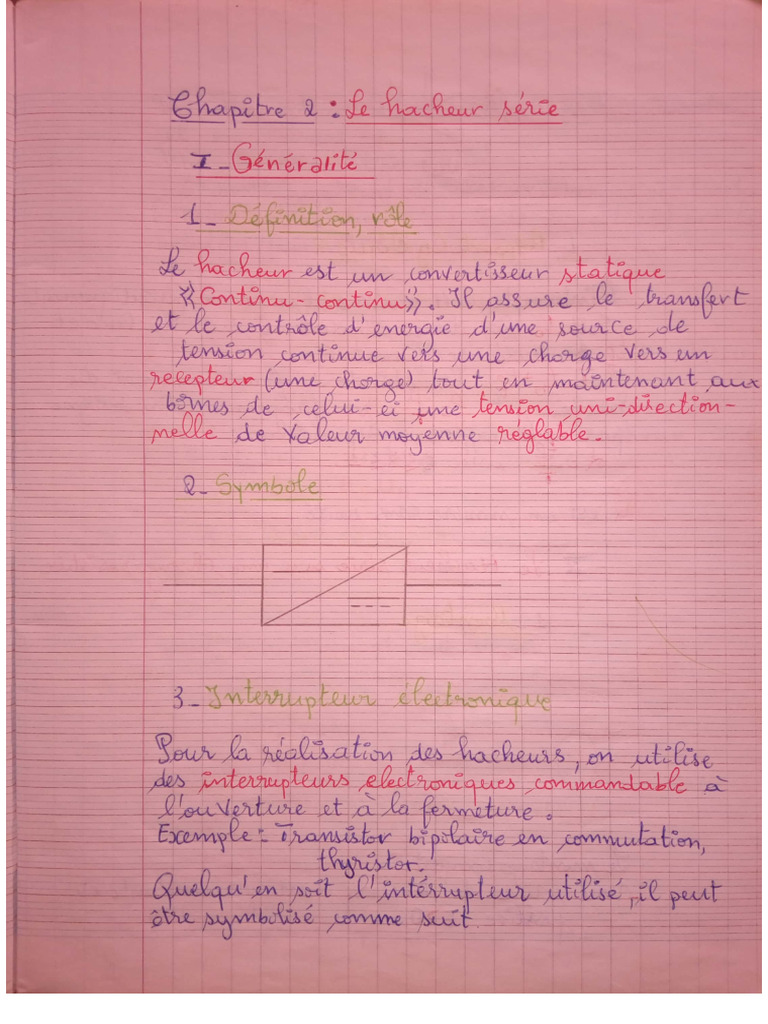 Chapitre 2 : Le hacheur série
I - Généralité
1 - Définition, rôle
Le hacheur est un convertisseur statique
«Continu-continu». Il assure le transfert
et le contrôle d'énergie d'une source de
tension continue vers une charge vers un
recepteur (une charge) tout en maintenant aux
bornes de celui-ci une tension uni-direction-
nelle de valeur moyenne réglable.
2 - Symbole
3 - Interrupteur électronique
Pour la réalisation des hacheurs, on utilise
des interrupteurs electroniques commandable à
l'ouverture et à la fermeture.
Exemple : Transistor bipolaire en commutation,
thyristor.
Quelqu'en soit l'intérrupteur utilisé, il peut
être symbolisé comme suit